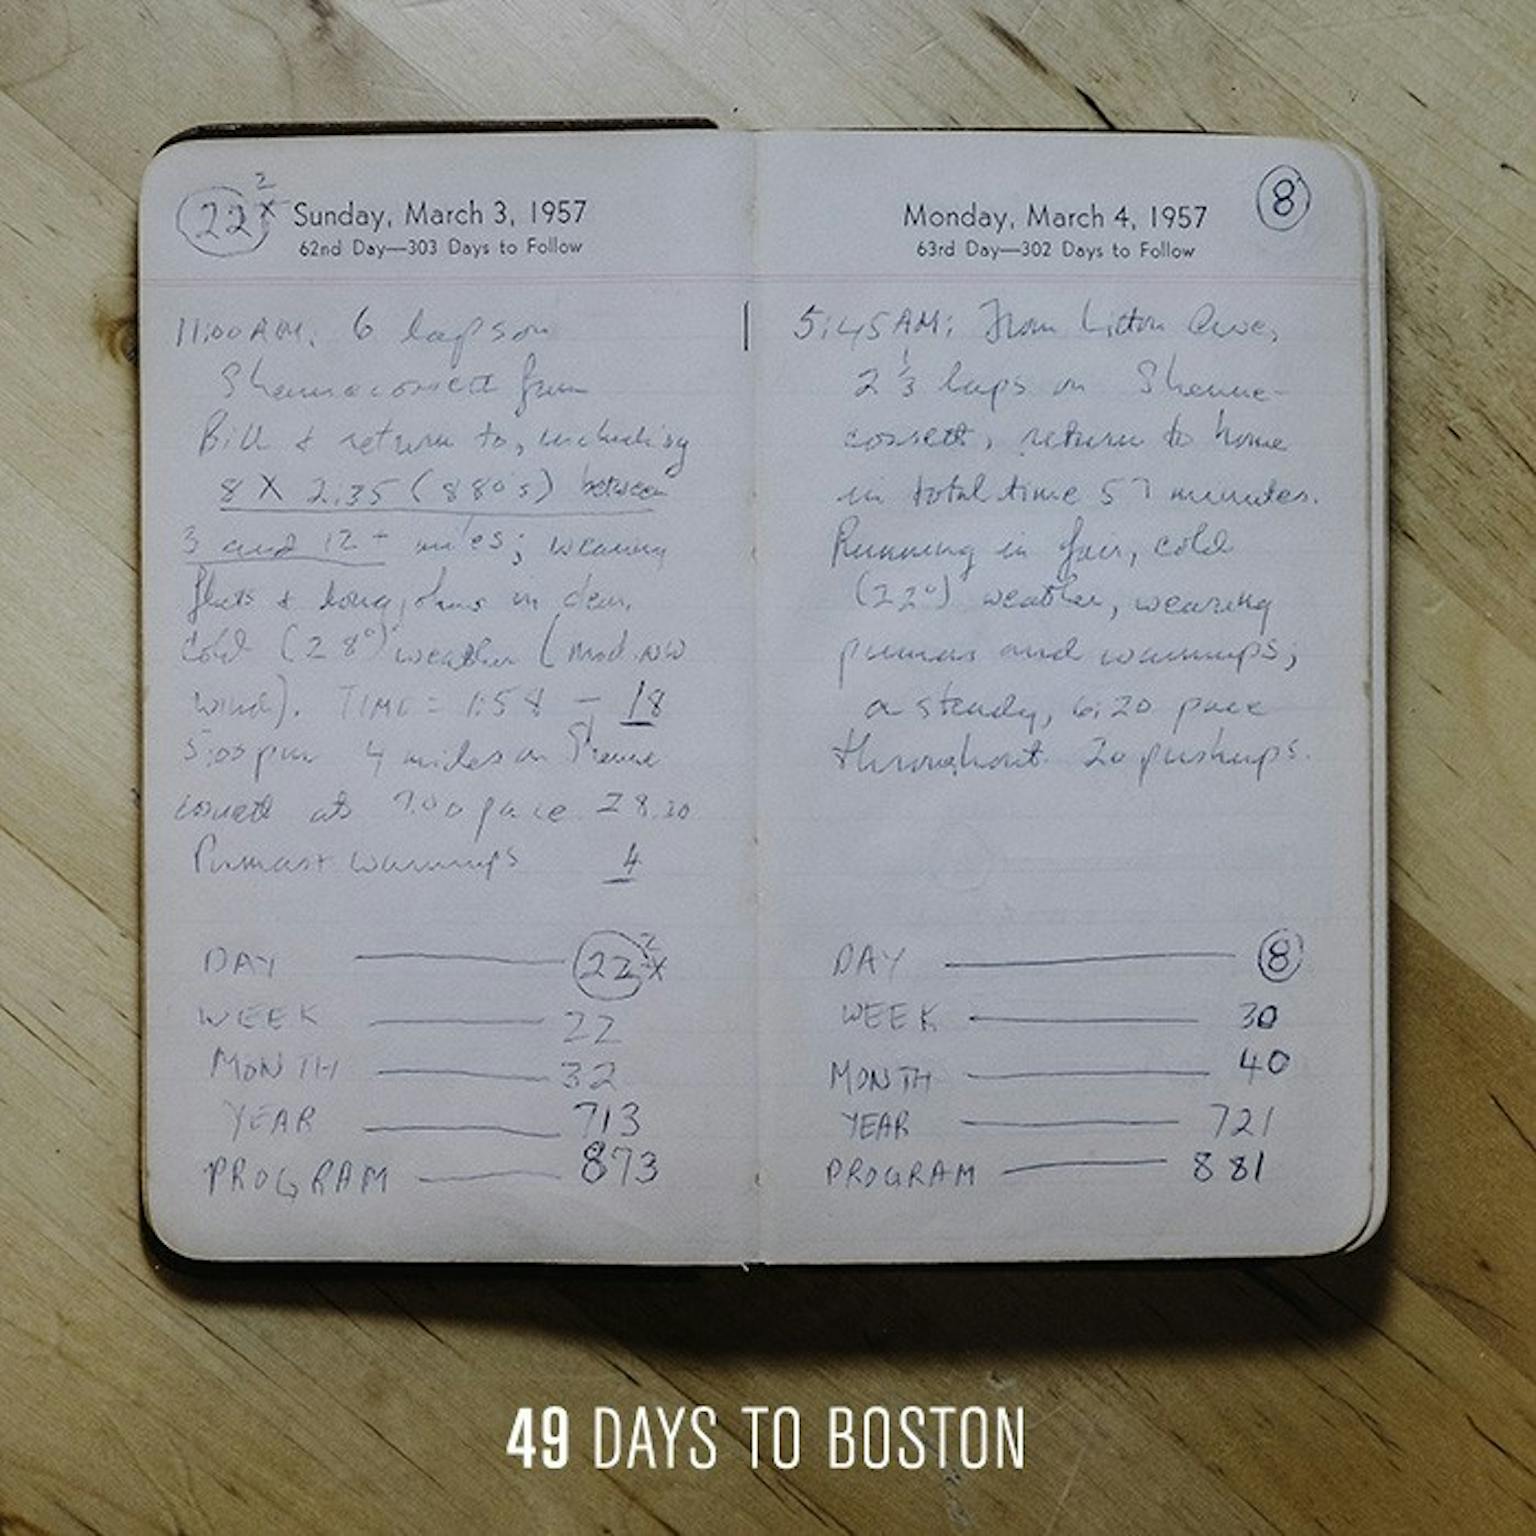 22 2x
Sunday, March 3, 1957
62nd Day—303 Days to Follow
11:00 AM. 6 laps on
Shennecossett from
Bill & return to, including
8 X 2:35 (880's) between
3 and 12+ miles; wearing
flats & longjohns in clear,
cold (28°) weather (mod. NW
wind). TIME = 1:58 — 18
5:00 pm 4 miles on Shenne
cossett at 7:00 pace. 28:20
Pumas + warmups 4
DAY 22 2x
WEEK 22
MONTH 32
YEAR 713
PROGRAM 873
Monday, March 4, 1957
8
63rd Day—302 Days to Follow
5:45 AM: From Ave,
2 1/3 laps on Shenne-
cossett, return to home
in total time 57 minutes.
Running in fair, cold
(22°) weather, wearing
pumas and warmups;
a steady, 6:20 pace
throughout. 20 pushups.
DAY 8
WEEK 30
MONTH 40
YEAR 721
PROGRAM 881
49 DAYS TO BOSTON